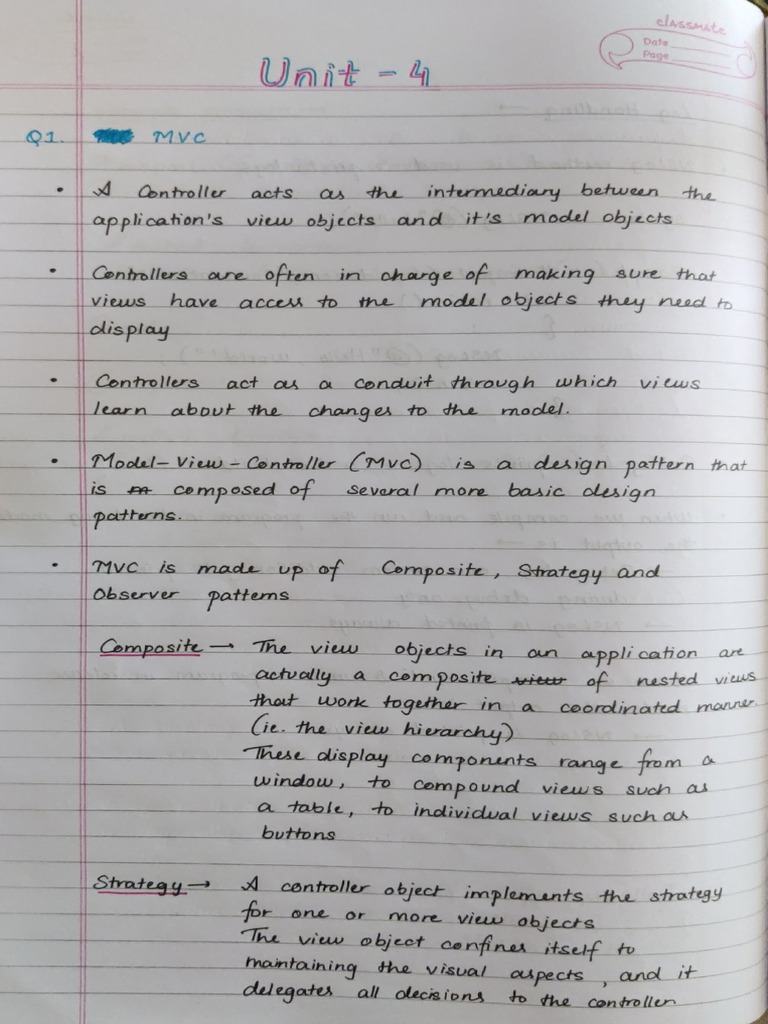 classmate
Date
Page
Unit - 4
Q1. MVC
• A Controller acts as the intermediary between the
application's view objects and it's model objects
• Controllers are often in charge of making sure that
views have access to the model objects they need to
display
• Controllers act as a conduit through which views
learn about the changes to the model.
• Model-View-Controller (MVC) is a design pattern that
is composed of several more basic design
patterns.
• MVC is made up of Composite, Strategy and
Observer patterns
Composite → The view objects in an application are
actually a composite view of nested views
that work together in a coordinated manner.
(ie. the view hierarchy)
These display components range from a
window, to compound views such as
a table, to individual views such as
buttons
Strategy → A controller object implements the strategy
for one or more view objects
The view object confines itself to
maintaining the visual aspects, and it
delegates all decisions to the controller